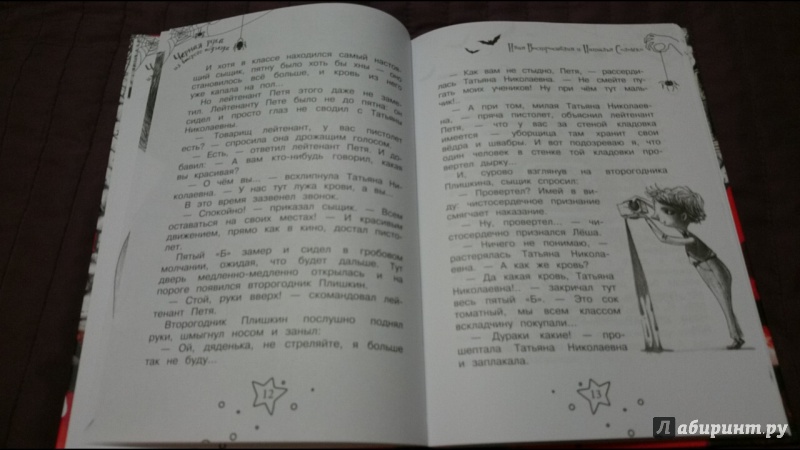 Черная рука
И хотя в классе находился самый настоя-
щий сыщик, пятну было хоть бы хны — оно
становилось всё больше, и кровь из него
уже капала на пол...
Но лейтенант Петя этого даже не заме-
тил. Лейтенанту Пете было не до пятна, он
сидел и просто глаз не сводил с Татьяны
Николаевны.
— Товарищ лейтенант, у вас пистолет
есть? — спросила она дрожащим голосом.
— Есть, — ответил лейтенант Петя. И до-
бавил: — А вам кто-нибудь говорил, какая
вы красивая?
— О чём вы... — всхлипнула Татьяна Ни-
колаевна. — У нас тут лужа крови, а вы...
В это время зазвенел звонок.
— Спокойно! — приказал сыщик. — Всем
оставаться на своих местах! — И красивым
движением, прямо как в кино, достал писто-
лет.
Пятый «Б» замер и сидел в гробовом
молчании, ожидая, что будет дальше. Тут
дверь медленно-медленно открылась и на
пороге появился второгодник Плишкин.
— Стой, руки вверх! — скомандовал лей-
тенант Петя.
Второгодник Плишкин послушно поднял
руки, шмыгнул носом и заныл:
— Ой, дяденька, не стреляйте, я больше
так не буду...
12
— Как вам не стыдно, Петя, — рассерди-
лась Татьяна Николаевна. — Не смейте пу-
гать моих учеников! Ну при чём тут маль-
чик!..
— А при том, милая Татьяна Николаев-
на, — пряча пистолет, объяснил лейтенант
Петя, — что у вас за стеной кладовка
имеется — уборщица там хранит свои
вёдра и швабры. И вот подозреваю я, что
один человек в стенке той кладовки про-
вертел дырку...
И, сурово взглянув на второгодника
Плишкина, сыщик спросил:
— Провертел? Имей в ви-
ду: чистосердечное признание
смягчает наказание.
— Ну, провертел... — чи-
стосердечно признался Лёша.
— Ничего не понимаю, —
растерялась Татьяна Никола-
евна. — А как же кровь?
— Да какая кровь, Татьяна
Николаевна!.. — закричал тут
весь пятый «Б». — Это сок
томатный, мы всем классом
вскладчину покупали...
— Дураки какие! — про-
шептала Татьяна Николаевна
и заплакала.
13
Лабиринт.ру